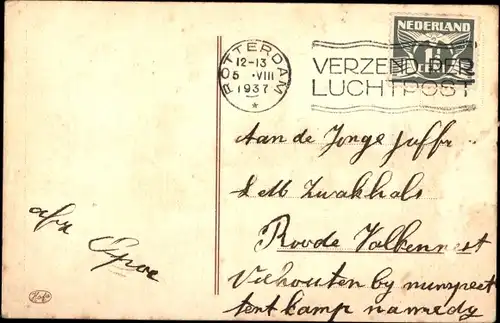 NEDERLAND
1½
ROTTERDAM
12-13
5 ·VIII
1937
*
VERZEND PER
LUCHTPOST
Aan de Jonge Juffr
Zwakhals
Roode Valkennest
Vierhouten by nunspeet
tent kamp
afz
Opoe